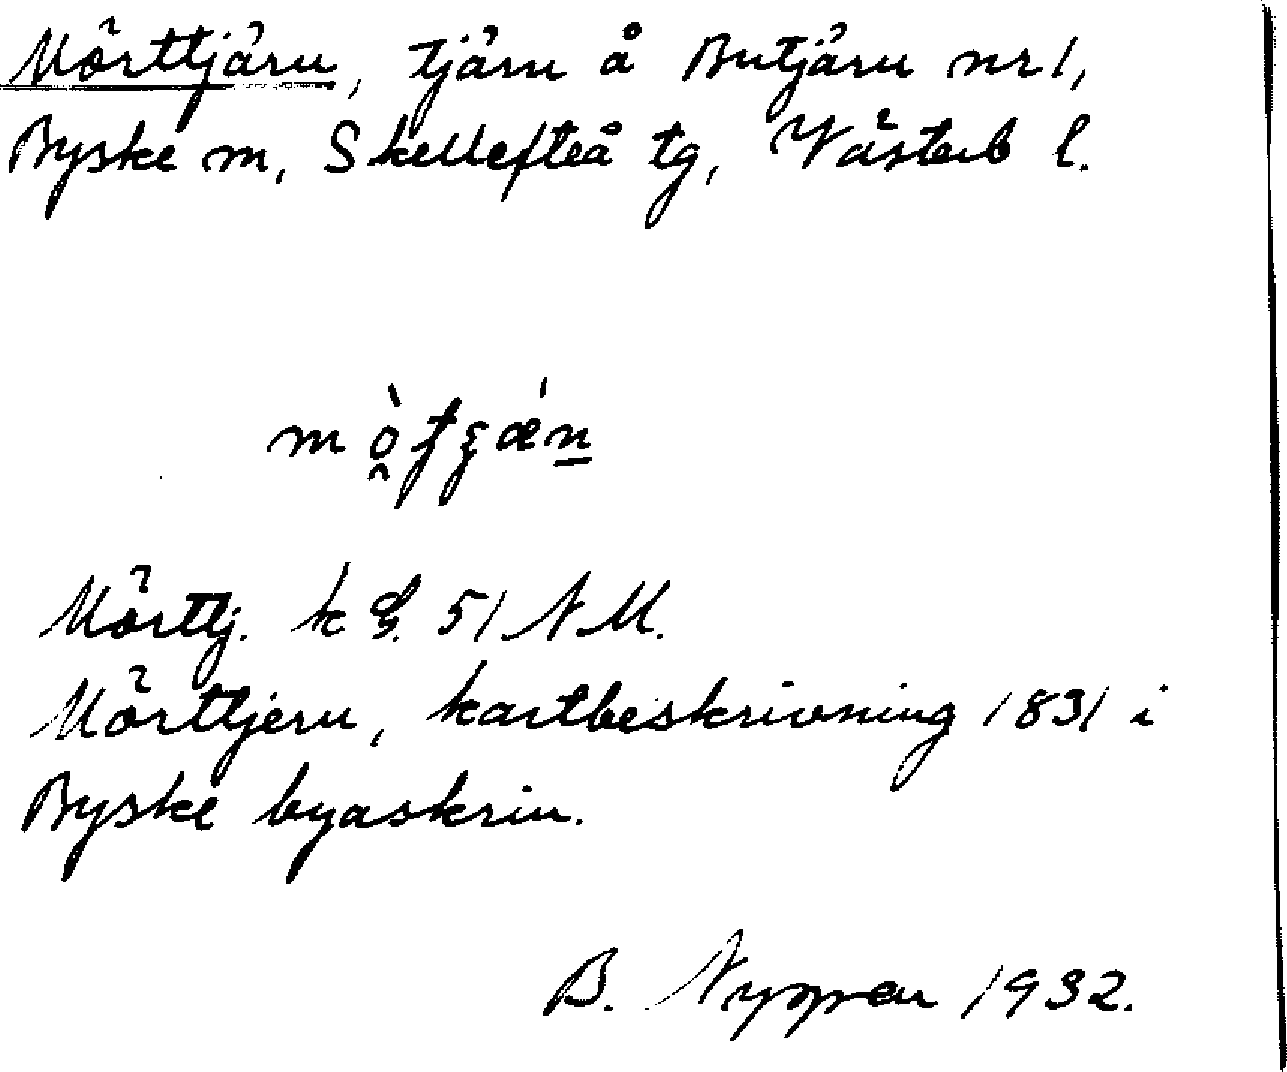 Mörttjärn, tjärn å Butjärn nr 1,
Byske m, Skellefteå tg, Västerb l.
Mörttj. k 51 NM.
Mörttjern, kartbeskrivning 1831 i
Byske byaskrin.
B. 1932.